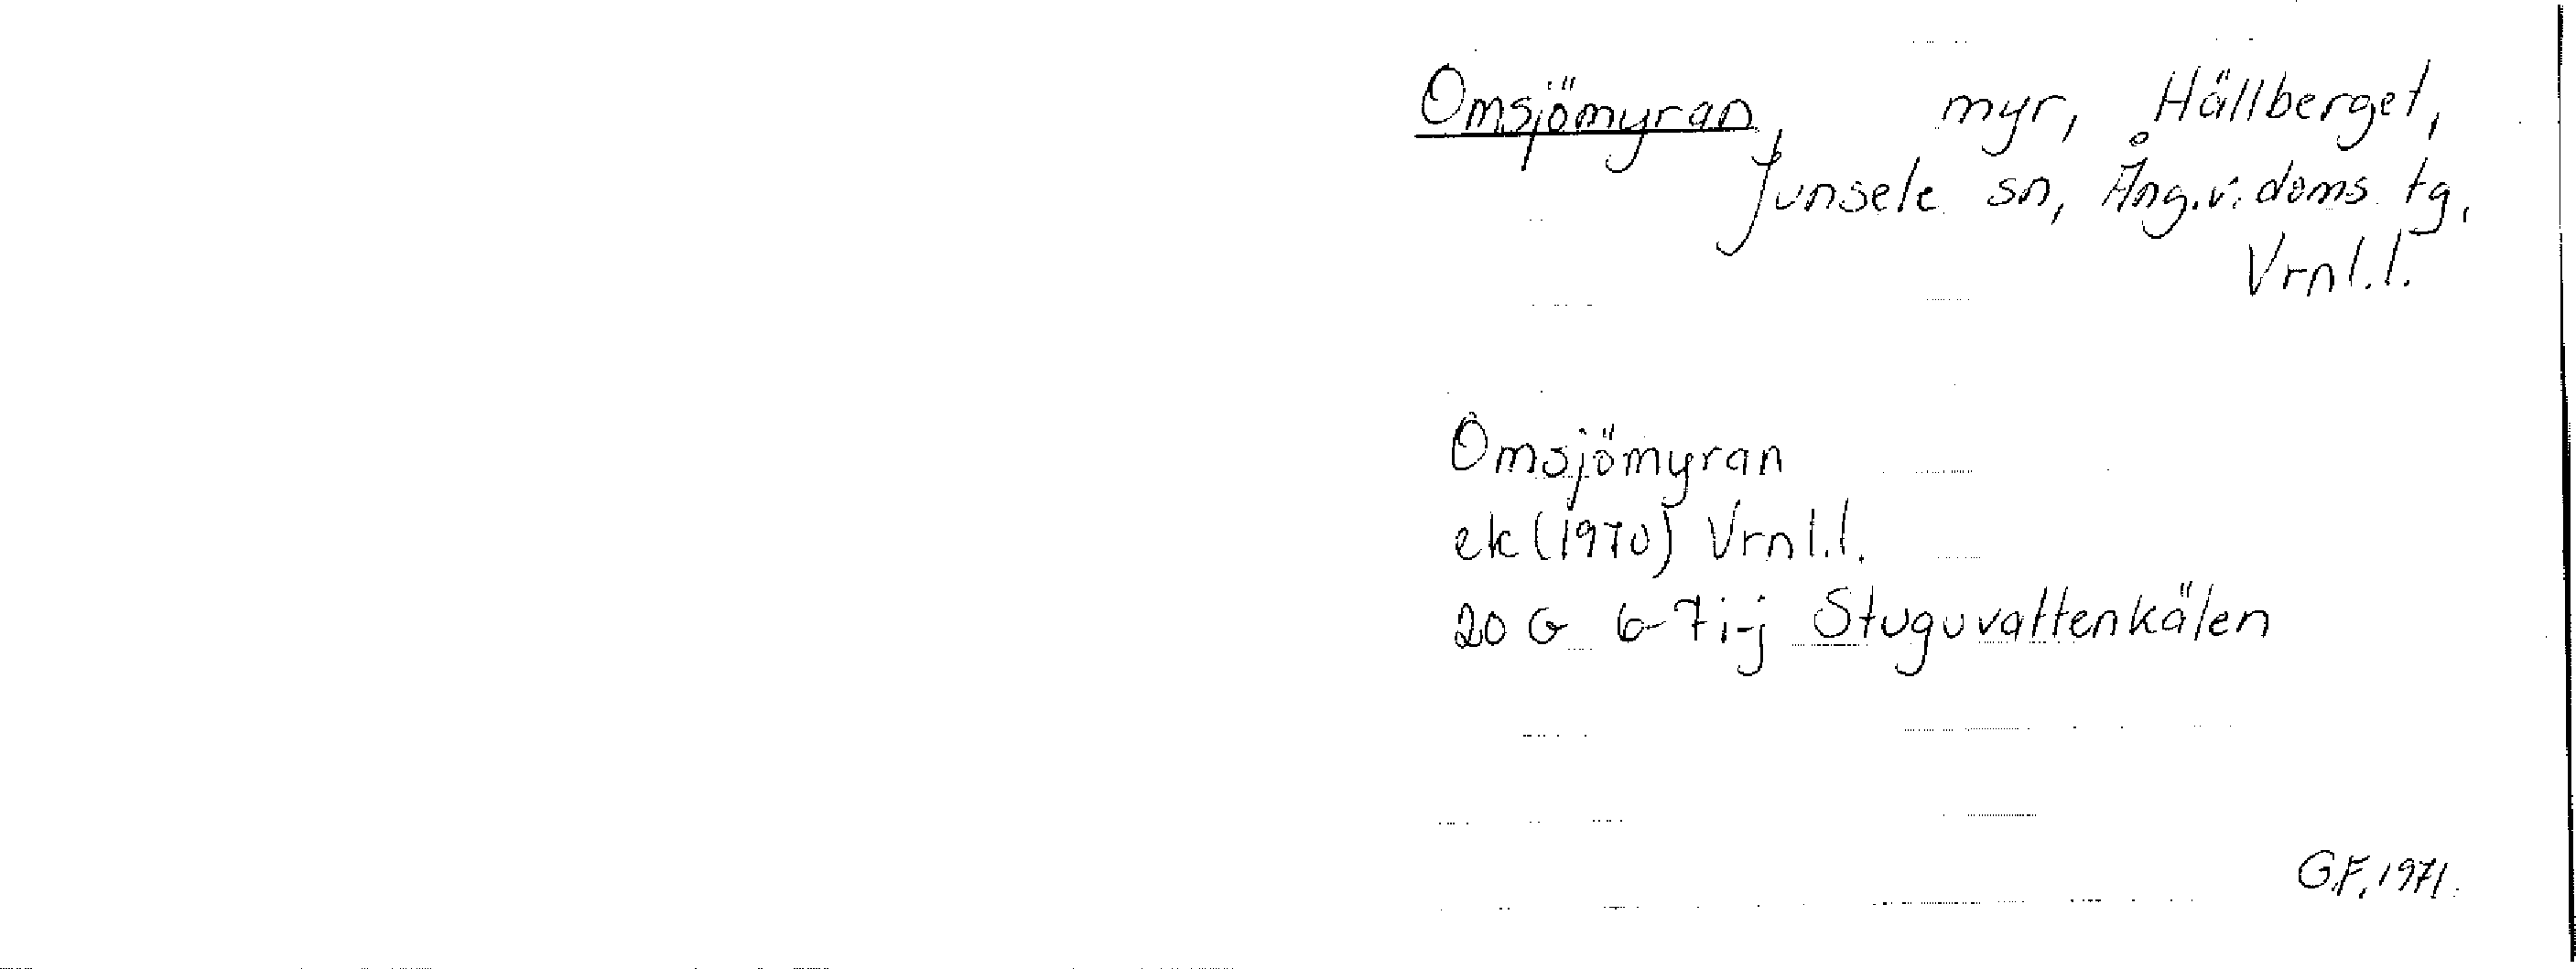 Omsjömyran, myr, Hällberget,
Junsele sn, Ång.v. doms. tg,
Vrnl.l.
Omsjömyran
ek (1970) Vrnl.l.
20 G 6-7 i-j Stuguvattenkälen
G.F. 1971.